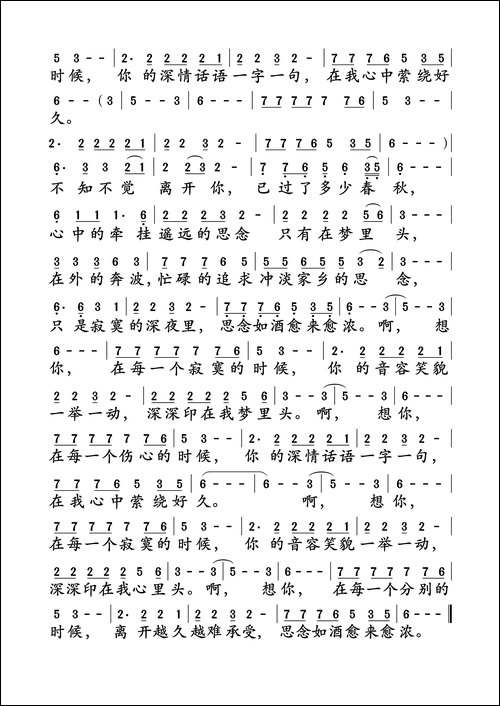 5 3 - - | 2· 2 2 2 2 1 | 2 2 3 2 - | 7 7 7 6 5 3 5 |
时候， 你 的深情话语一字一句， 在我心中萦绕好
6 - - (3 | 5 - - 3 | 6 - - - | 7 7 7 7 7 7 6 | 5 3 - |
久。
2· 2 2 2 2 1 | 2 2 3 2 - | 7 7 7 6 5 3 5 | 6 - - -)
6· 3 3 2 1 | 2 2 3 2 - | 7 7 6 5 6 3 5 | 6 - - - |
不 知不觉 离开你， 已过了多少春 秋，
6 1 1 1· 6 | 2 2 2 3 2 - | 2 2 2 2 5 6 | 3 - - - |
心中的牵 挂遥远的思念 只有在梦里 头，
3 3 3 6 3 | 7 7 7 6 5 | 5 5 6 5 5 3 2 | 3 - - - |
在外的奔波，忙碌的追求冲淡家乡的思 念，
6· 6 3 1 | 2 2 2 3 2 - | 7 7 7 6 5 3 5 | 6 - - 3 | 5 - - 3 |
只 是寂寞的深夜里， 思念如酒愈来愈浓。啊， 想
6 - - - | 7 7 7 7 7 7 6 | 5 3 - - | 2· 2 2 2 2 1 |
你， 在每一个寂寞的时候， 你 的音容笑貌
2 2 3 2 - | 2 2 2 2 2 5 6 | 3 - - 3 | 5 - - 3 | 6 - - - |
一举一动， 深深印在我梦里头。啊， 想你，
7 7 7 7 7 7 6 | 5 3 - - | 2· 2 2 2 2 1 | 2 2 3 2 - |
在每一个伤心的时候， 你 的深情话语一字一句，
7 7 7 6 5 3 5 | 6 - - - | 6 - - 3 | 5 - - 3 | 6 - - - |
在我心中萦绕好久。 啊， 想你，
7 7 7 7 7 7 6 | 5 3 - - | 2· 2 2 2 2 1 | 2 2 3 2 - |
在每一个寂寞的时候， 你 的音容笑貌一举一动，
2 2 2 2 2 5 6 | 3 - - 3 | 5 - - 3 | 6 - - - | 7 7 7 7 7 7 6 |
深深印在我心里头。啊， 想你， 在每一个分别的
5 3 - - | 2· 2 2 1 | 2 2 3 2 - | 7 7 7 6 5 3 5 | 6 - - -
时候， 离 开越久越难承受， 思念如酒愈来愈浓。